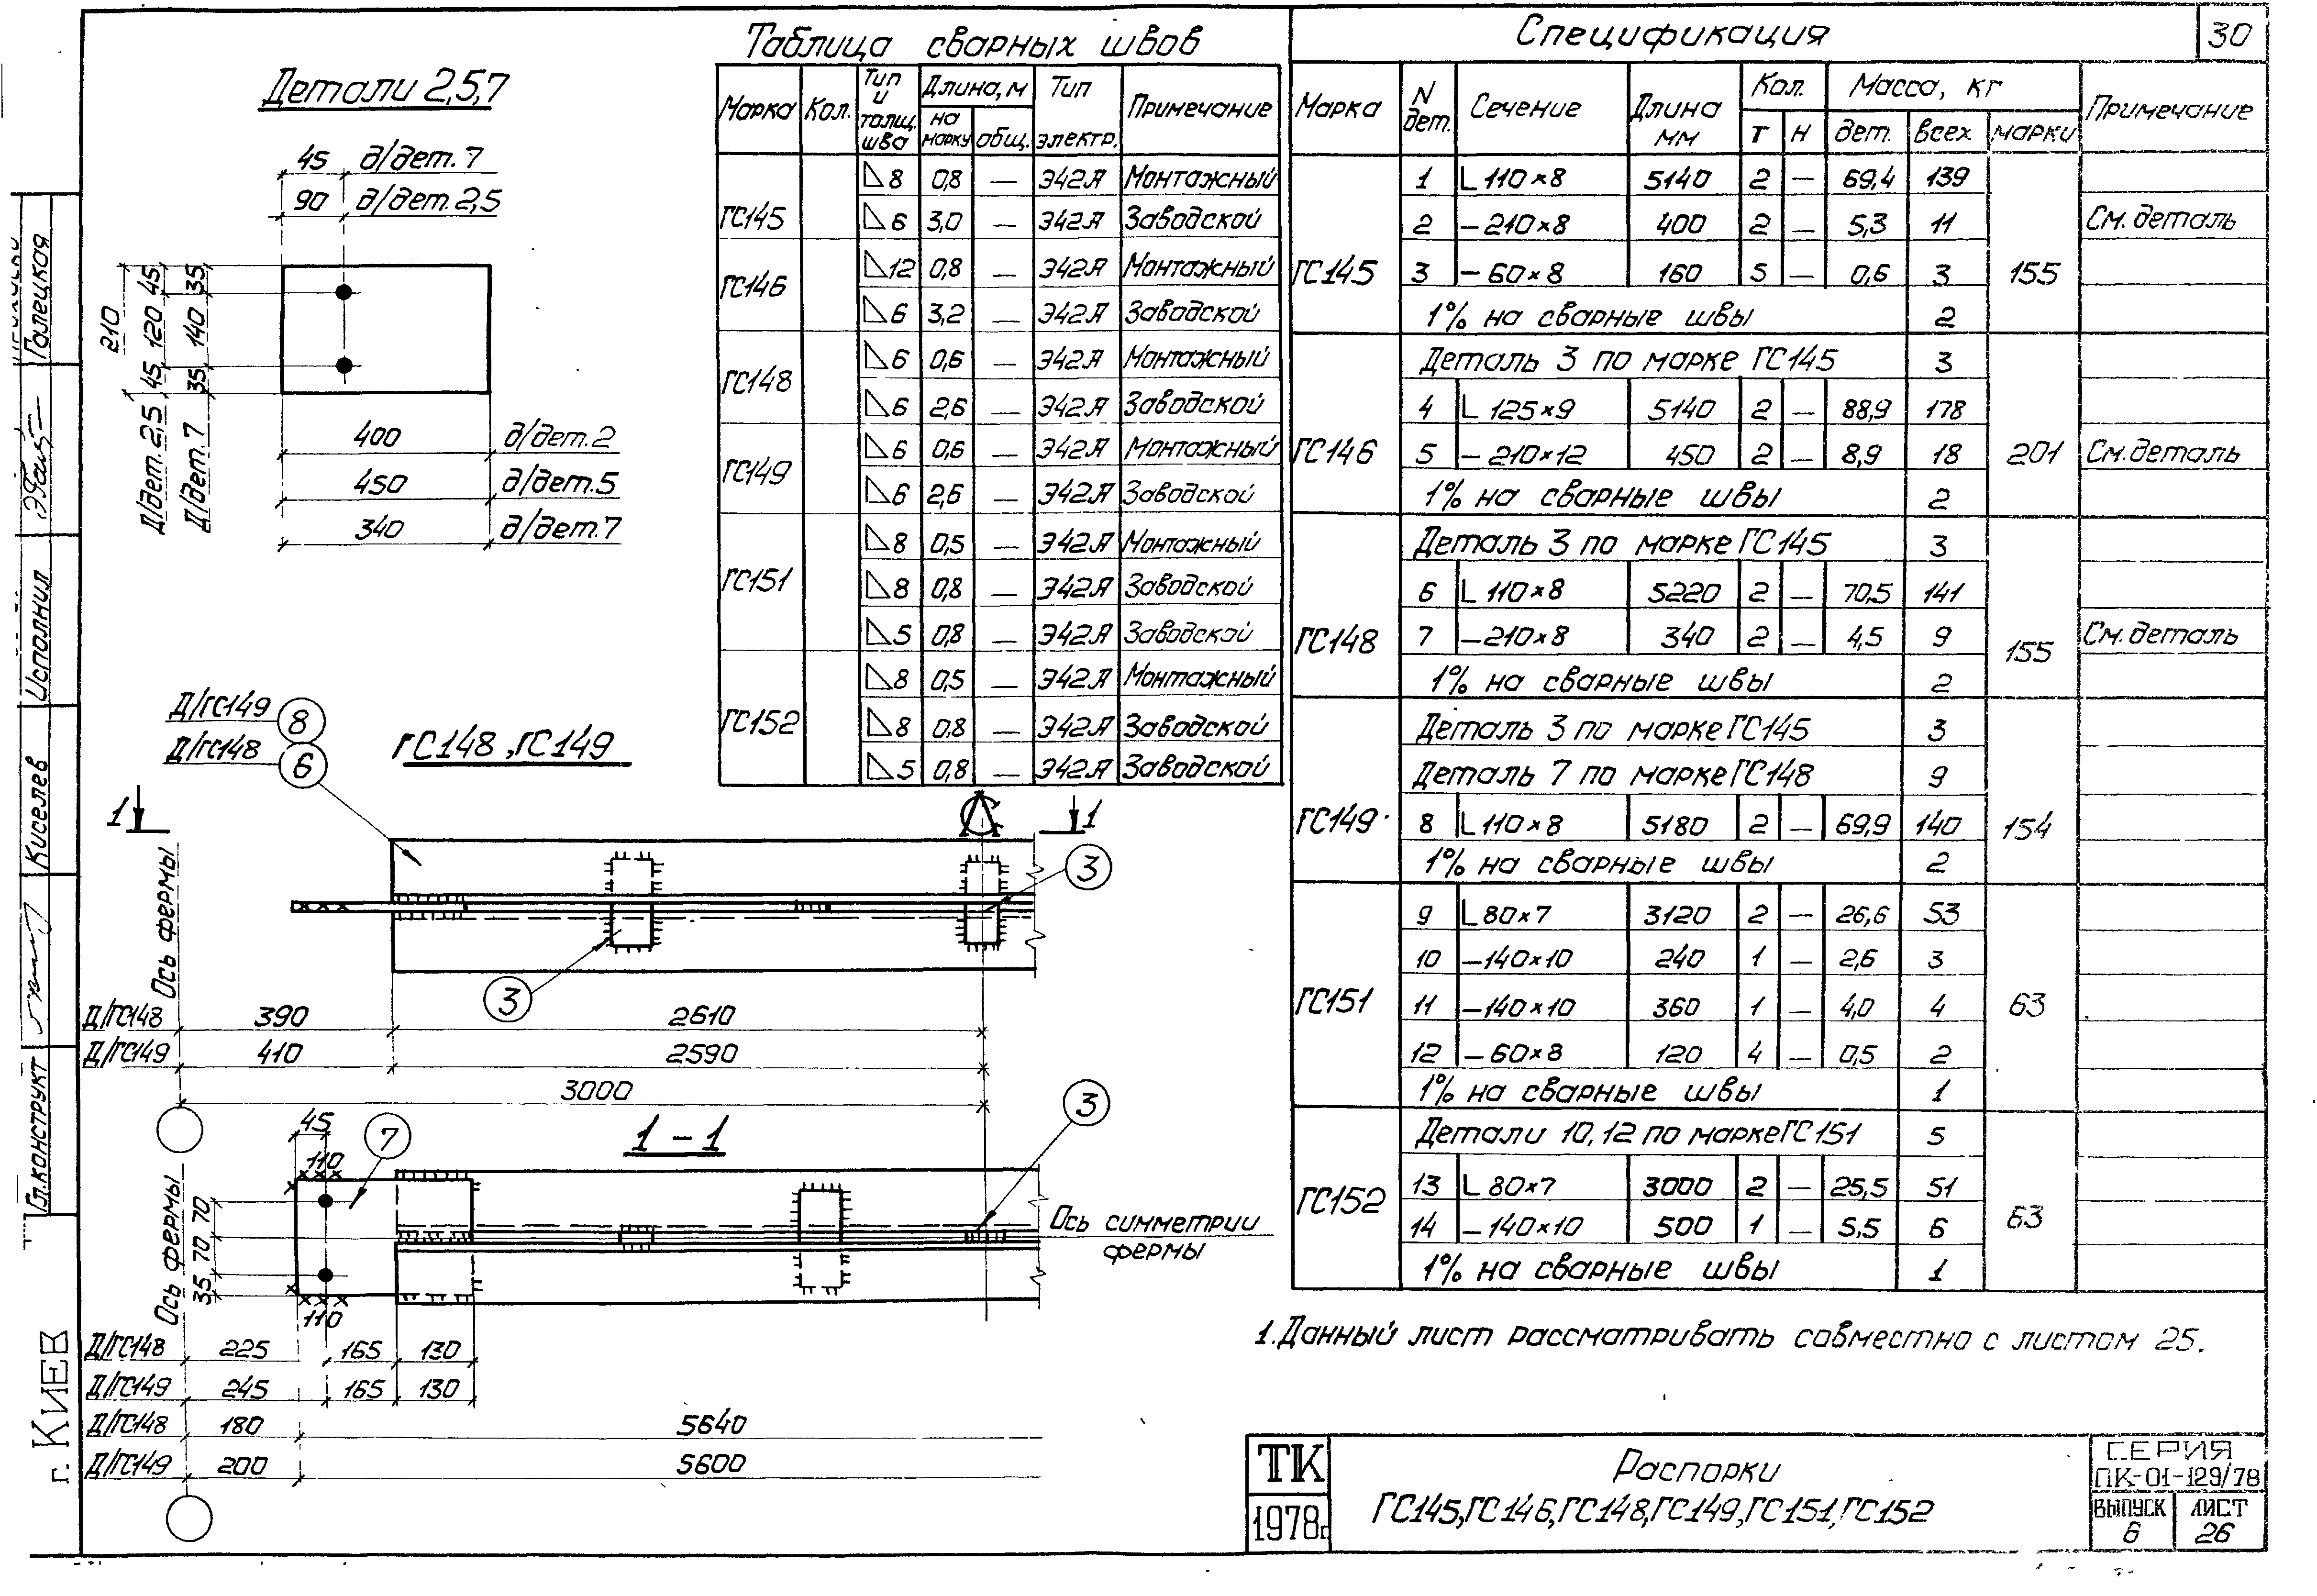 30
Детали 2,5,7
45 д/дет. 7
90 д/дет. 2,5
210
45 120 45
35 140 35
Д/дет. 2,5
Д/дет. 7
400 д/дет. 2
450 д/дет. 5
340 д/дет. 7
Таблица сварных швов
Марка Кол. Тип и толщ. шва Длина, м Тип электр. Примечание
на марку общ.
ГС145 8 0,8 — Э42А Монтажный
6 3,0 — Э42А Заводской
ГС146 12 0,8 — Э42А Монтажный
6 3,2 — Э42А Заводской
ГС148 6 0,6 — Э42А Монтажный
6 2,6 — Э42А Заводской
ГС149 6 0,6 — Э42А Монтажный
6 2,6 — Э42А Заводской
ГС151 8 0,5 — Э42А Монтажный
8 0,8 — Э42А Заводской
5 0,8 — Э42А Заводской
ГС152 8 0,5 — Э42А Монтажный
8 0,8 — Э42А Заводской
5 0,8 — Э42А Заводской
Спецификация
Марка N дет. Сечение Длина мм Кол. Масса, кг Примечание
Т Н дет. всех марки
ГС145 155
1 L 110×8 5140 2 — 69,4 139
2 —210×8 400 2 — 5,3 11 См. деталь
3 —60×8 160 5 — 0,6 3
1% на сварные швы 2
ГС146 201
Деталь 3 по марке ГС145 3
4 L 125×9 5140 2 — 88,9 178
5 —210×12 450 2 — 8,9 18 См. деталь
1% на сварные швы 2
ГС148 155
Деталь 3 по марке ГС145 3
6 L 110×8 5220 2 — 70,5 141
7 —210×8 340 2 — 4,5 9 См. деталь
1% на сварные швы 2
ГС149 154
Деталь 3 по марке ГС145 3
Деталь 7 по марке ГС148 9
8 L 110×8 5180 2 — 69,9 140
1% на сварные швы 2
ГС151 63
9 L 80×7 3120 2 — 26,6 53
10 —140×10 240 1 — 2,6 3
11 —140×10 360 1 — 4,0 4
12 —60×8 120 4 — 0,5 2
1% на сварные швы 1
ГС152 63
Детали 10,12 по марке ГС151 5
13 L 80×7 3000 2 — 25,5 51
14 —140×10 500 1 — 5,5 6
1% на сварные швы 1
1. Данный лист рассматривать совместно с листом 25.
Д/ГС149 8
Д/ГС148 6
ГС148, ГС149
1 1
3
3
Ось фермы
Д/ГС148 390 2610
Д/ГС149 410 2590
3000
1-1
3
45
7
110
Ось фермы
35 70 70
110
Ось симметрии
фермы
Д/ГС148 225 165 130
Д/ГС149 245 165 130
Д/ГС148 180 5640
Д/ГС149 200 5600
ТК
1978г.
Распорки
ГС145, ГС146, ГС148, ГС149, ГС151, ГС152
СЕРИЯ
ПК-01-129/78
ВЫПУСК 6
ЛИСТ 26
Галецкая
Исполнил
Киселев
Гл. конструкт
г. Киев